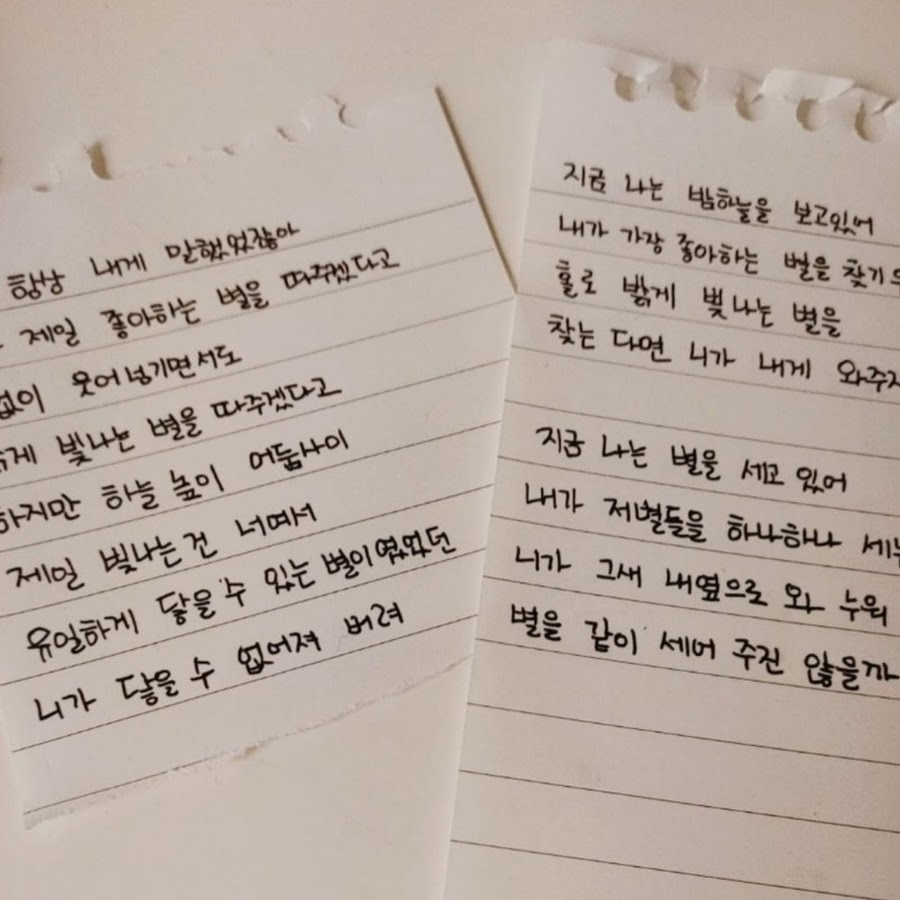 항상 내게 말했었잖아
제일 좋아하는 별을 따주겠다고
없이 웃어넘기면서도
빛나는 별을 따주겠다고
하지만 하늘높이 어둠사이
제일 빛나는건 너여서
유일하게 닿을수 있는 별이였었던
니가 닿을수 없어져 버려
지금 나는 밤하늘을 보고있어
내가 가장 좋아하는 별을 찾기
홀로 밝게 빛나는 별을
찾는 다면 니가 내게 와주
지금 나는 별을 세고 있어
내가 저별들을 하나하나 세
니가 그새 내옆으로 와 누워
별을 같이 세어 주진 않을까